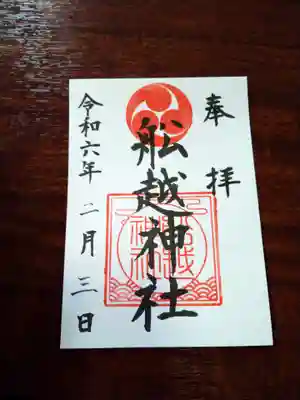 奉拝
舩越神社
令和六年二月三日